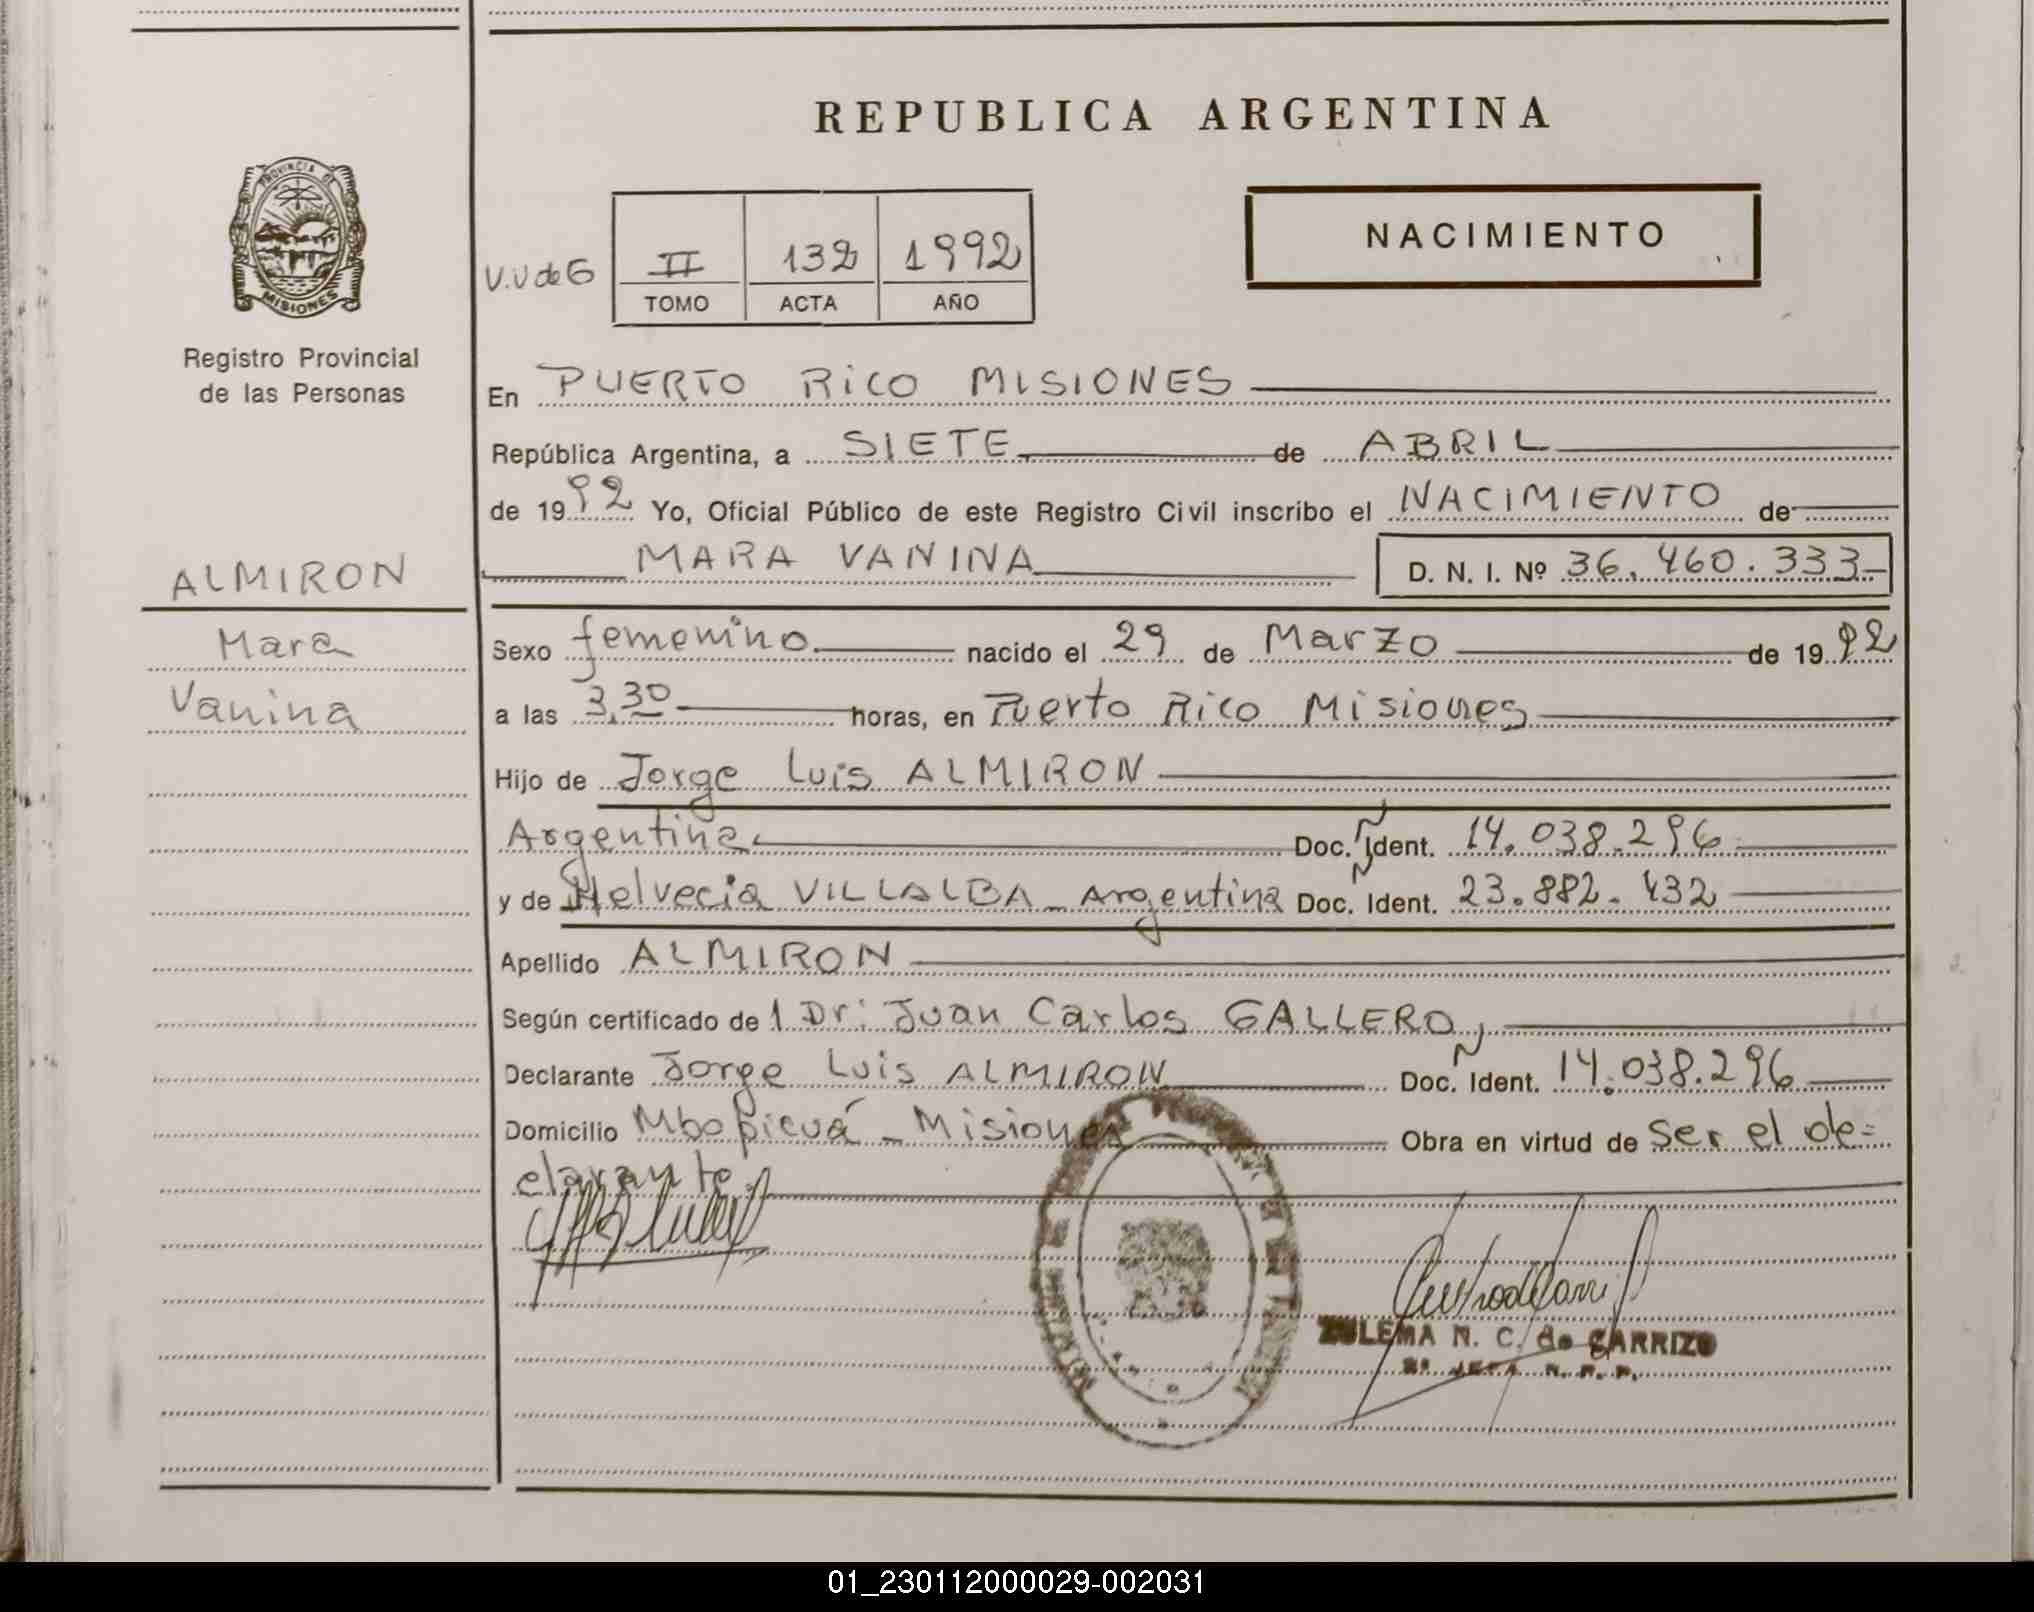 REPUBLICA ARGENTINA
PROVINCIA DE
MISIONES
Registro Provincial
de las Personas
NACIMIENTO
V.V de G
II 132 1992
TOMO ACTA AÑO
En PUERTO RICO MISIONES
República Argentina, a SIETE de ABRIL
de 1992 Yo, Oficial Público de este Registro Civil inscribo el NACIMIENTO de
MARA VANINA D. N. I. Nº 36.460.333
ALMIRON
Mara
Vanina
Sexo femenino nacido el 29 de Marzo de 1992
a las 3,30 horas, en Puerto Rico Misiones
Hijo de Jorge Luis ALMIRON
Argentina Doc. Ident. 14.038.296
y de Helvecia VILLALBA - Argentina Doc. Ident. 23.882.432
Apellido ALMIRON
Según certificado de 1 Dr: Juan Carlos GALLERO,
Declarante Jorge Luis ALMIRON Doc. Ident. 14.038.296
Domicilio Mbopicuá - Misiones Obra en virtud de ser el de=
clarante.
ZULEMA N. C. de CARRIZO
JEFA R. P. P.
01_230112000029-002031